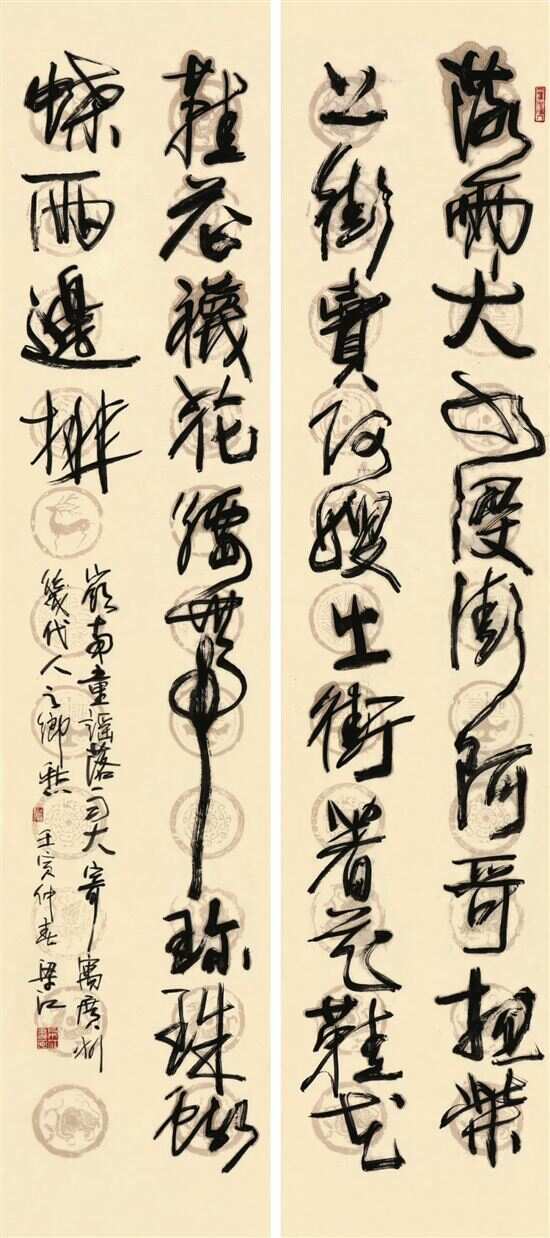 落雨大水浸街阿哥担柴
上街賣阿嫂出街着花鞋花
鞋花襪花腰帶珍珠蝴
蝶兩邊排
嶺南童謡落雨大寄寓廣州
幾代人之鄉愁 壬寅仲春 梁江